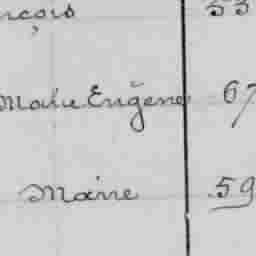 nçois 55
Marie Eugène 67
Marie 59